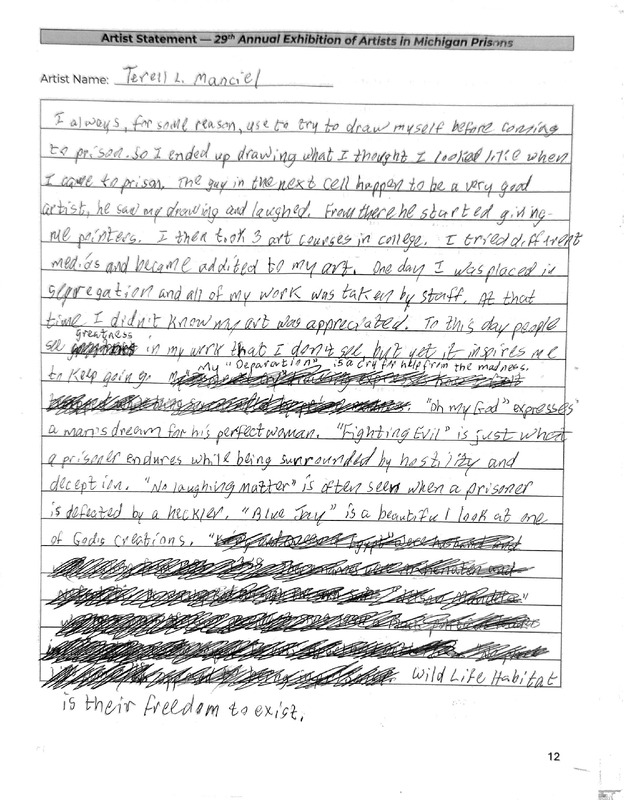 Artist Statement — 29th Annual Exhibition of Artists in Michigan Prisons
Artist Name: Terell L. Manciel
I always, for some reason, use to try to draw myself before coming
to prison. So I ended up drawing what I thought I looked like when
I came to prison. The guy in the next cell happen to be a very good
artist, he saw my drawing and laughed. From there he started giving
me pointers. I then took 3 art courses in college. I tried different
medias and became addited to my art. One day I was placed in
segregation and all of my work was taken by staff. At that
time I didn't know my art was appreciated. To this day people
greatness
see in my work that I don't see, but yet it inspires me
My "Deparation" is a cry for help from the madness.
to keep going.
"Oh my God" expresses
a man's dream for his perfect woman. "Fighting Evil" is just what
a prisoner endures while being surrounded by hostility and
deception. "No laughing Matter" is often seen when a prisoner
is defected by a heckler. "Blue Jay" is a beautiful look at one
of Gods creations.
Wild Life Habitat
is their freedom to exist.
12